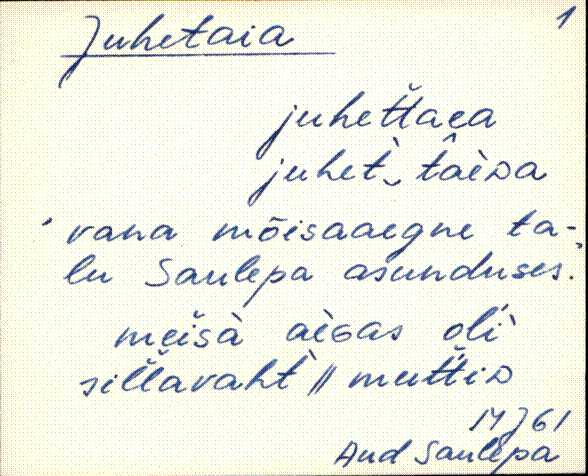 Juhetaia 1
juhet̆t̆aea
juhet̀‿tâèᴅa
' vana mõisaaegne ta-
lu Saulepa asunduses.'
meĭsà aèɢas olì
sil̆l̆avaht̀ // mut̆t̆iᴅ
MJ 61
Aud Saulepa